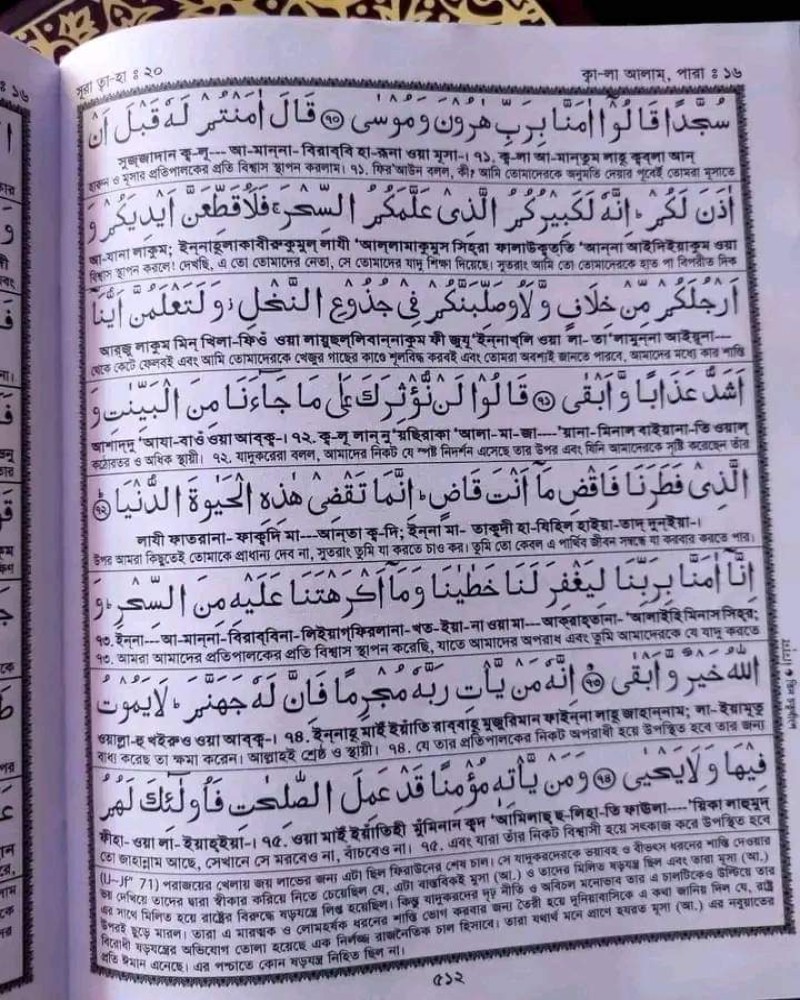 সূরা ত্বা-হা : ২০
ক্বা-লা আলাম্, পারা : ১৬
: ১৬
سُجَّدًا قَالُوْٓا اٰمَنَّا بِرَبِّ هٰرُوْنَ وَمُوْسٰى ﴿۷۰﴾ قَالَ اٰمَنْتُمْ لَهٗ قَبْلَ اَنْ
সুজ্জাদান ক্ব-লূ--- আ-মান্না- বিরাব্বি হা-রূনা ওয়া মূসা-। ৭১. ক্ব-লা আ-মান্তুম লাহূ ক্বব্লা আন্
হারূন ও মূসার প্রতিপালকের প্রতি বিশ্বাস স্থাপন করলাম। ৭১. ফির'আউন বলল, কী! আমি তোমাদেরকে অনুমতি দেয়ার পূর্বেই তোমরা মূসাতে
اٰذَنَ لَكُمْ ؕ اِنَّهٗ لَكَبِيْرُكُمُ الَّذِىْ عَلَّمَكُمُ السِّحْرَ ۚ فَلَاُقَطِّعَنَّ اَيْدِيَكُمْ وَ
আ-যানা লাকুম; ইন্নাহূলাকাবীরুকুমুল্ লাযী 'আল্লামাকুমুস সিহরা ফালাউক্বত্তি 'আন্না আইদিইয়াকুম ওয়া
বিশ্বাস স্থাপন করলে! দেখছি, এ তো তোমাদের নেতা, সে তোমাদের যাদু শিক্ষা দিয়েছে। সুতরাং আমি তো তোমাদেরকে হাত পা বিপরীত দিক
اَرْجُلَكُمْ مِّنْ خِلَافٍ وَّلَاُوصَلِّبَنَّكُمْ فِىْ جُذُوْعِ النَّخْلِ ؗ وَلَتَعْلَمُنَّ اَيُّنَآ
আরজুলাকুম মিন্ খিলা-ফিওঁ ওয়া লাযুছল্লিবান্নাকুম ফী জুযূ'ইন্নাখ্লি ওয়া লা- তা'লামুন্না আইয়ুনা---
থেকে কেটে ফেলবই এবং আমি তোমাদেরকে খেজুর গাছের কান্ডে শূলবিদ্ধ করবই এবং তোমরা অবশ্যই জানতে পারবে, আমাদের মধ্যে কার শাস্তি
اَشَدُّ عَذَابًا وَّاَبْقٰى ﴿۷۱﴾ قَالُوْا لَنْ نُّؤْثِرَكَ عَلٰى مَا جَآءَنَا مِنَ الْبَيِّنٰتِ وَ
আশাদ্দু 'আযা-বাওঁ ওয়া আব্ক্ব-। ৭২. ক্ব-লূ লান্ নু'ছিরাকা 'আলা-মা-জা----'য়ানা-মিনাল বাইয়িনা-তি ওয়াল্
কঠোরতর ও অধিক স্থায়ী। ৭২. যাদুকরেরা বলল, আমাদের নিকট যে স্পষ্ট নিদর্শন এসেছে তার উপর এবং যিনি আমাদেরকে সৃষ্টি করেছেন তাঁর
الَّذِىْ فَطَرَنَا فَاقْضِ مَآ اَنْتَ قَاضٍ ؕ اِنَّمَا تَقْضِىْ هٰذِهِ الْحَيٰوةَ الدُّنْيَا ﴿۷۲﴾
লাযী ফাত্বরানা- ফাক্ব্দি মা---আন্তা ক্ব-দি; ইন্না মা- তাক্ব্দী হা-যিহিল হাইয়া-তাদ্ দুন্ইয়া-।
উপর আমরা কিছুতেই তোমাকে প্রাধান্য দেব না, সুতরাং তুমি যা করতে চাও কর। তুমি তো কেবল এ পার্থিব জীবন সম্বন্ধে যা করবার করতে পার।
اِنَّآ اٰمَنَّا بِرَبِّنَا لِيَغْفِرَ لَنَا خَطٰيٰنَا وَمَآ اَكْرَهْتَنَا عَلَيْهِ مِنَ السِّحْرِ ؕ وَ
৭৩. ইন্না--- আ-মান্না-বিরাব্বিনা-লিইয়াগ্ফিরালানা-খত-ইয়া-না ওয়া মা---আক্রাহ্তানা-'আলাইহি মিনাস সিহ্র;
৭৩. আমরা আমাদের প্রতিপালকের প্রতি বিশ্বাস স্থাপন করেছি, যাতে আমাদের অপরাধ এবং তুমি আমাদেরকে যে যাদু করতে
اللّٰهُ خَيْرٌ وَّاَبْقٰى ﴿۷۳﴾ اِنَّهٗ مَنْ يَّاْتِ رَبَّهٗ مُجْرِمًا فَاِنَّ لَهٗ جَهَنَّمَ ؕ لَا يَمُوْتُ
ওয়াল্লা-হু খইরুওঁ ওয়া আব্ক্ব-। ৭৪. ইন্নাহূ মাইঁ ইয়া'তি রাব্বাহূ মুজ্রিমান ফাইন্না লাহূ জাহান্নাম; লা-ইয়ামূতু
বাধ্য করেছ তা ক্ষমা করেন। আল্লাহই শ্রেষ্ঠ ও স্থায়ী। ৭৪. যে তার প্রতিপালকের নিকট অপরাধী হয়ে উপস্থিত হবে তার জন্য
فِيْهَا وَلَا يَحْيٰى ﴿۷۴﴾ وَمَنْ يَّاْتِهٖ مُؤْمِنًا قَدْ عَمِلَ الصّٰلِحٰتِ فَاُولٰٓئِكَ لَهُمُ
ফীহা-ওয়া লা-ইয়াহ্ইয়া-। ৭৫. ওয়া মাইঁ ইয়া'তিহী মু'মিনান ক্বদ 'আমিলাছ্ ছ-লিহা-তি ফাউলা----'য়িকা লাহুমুদ্
তো জাহান্নাম আছে, সেখানে সে মরবেও না, বাঁচবেও না। ৭৫. এবং যারা তাঁর নিকট বিশ্বাসী হয়ে সৎকাজ করে উপস্থিত হবে
পরাজয়ের খেলায় জয় লাভের জন্য এটা ছিল ফিরাউনের শেষ চাল। সে যাদুকরদেরকে ভয়াবহ ও বীভৎস ধরনের শাস্তি দেওয়ার
ভয় দেখিয়ে তাদের দ্বারা স্বীকার করিয়ে নিতে চেয়েছিল যে, এটা বাস্তবিকই মূসা (আ.) ও তাদের মিলিত ষড়যন্ত্র ছিল এবং তারা মূসা (আ.)
এর সাথে মিলিত হয়ে রাষ্ট্রের বিরুদ্ধে ষড়যন্ত্রে লিপ্ত হয়েছিল। কিন্তু যাদুকরদের দৃঢ় নীতি ও অবিচল মনোভাব তার এ চালটিকেও উল্টিয়ে তার
উপরই ছুড়ে মারল। তারা এ মারাত্মক ও লোমহর্ষক ধরনের শাস্তি ভোগ করবার জন্য তৈরী হয়ে দুনিয়াবাসিকে এ কথা জানিয়ে দিল যে, রাষ্ট্র
বিরোধী ষড়যন্ত্রের অভিযোগ তোলা হয়েছে এক নির্লজ্জ রাজনৈতিক চাল হিসাবে। তারা যথার্থ মনে প্রাণে হযরত মূসা (আ.) এর নবুয়াতের
প্রতি ঈমান এনেছে। এর পশ্চাতে কোন ষড়যন্ত্র নিহিত ছিল না।
৫১২